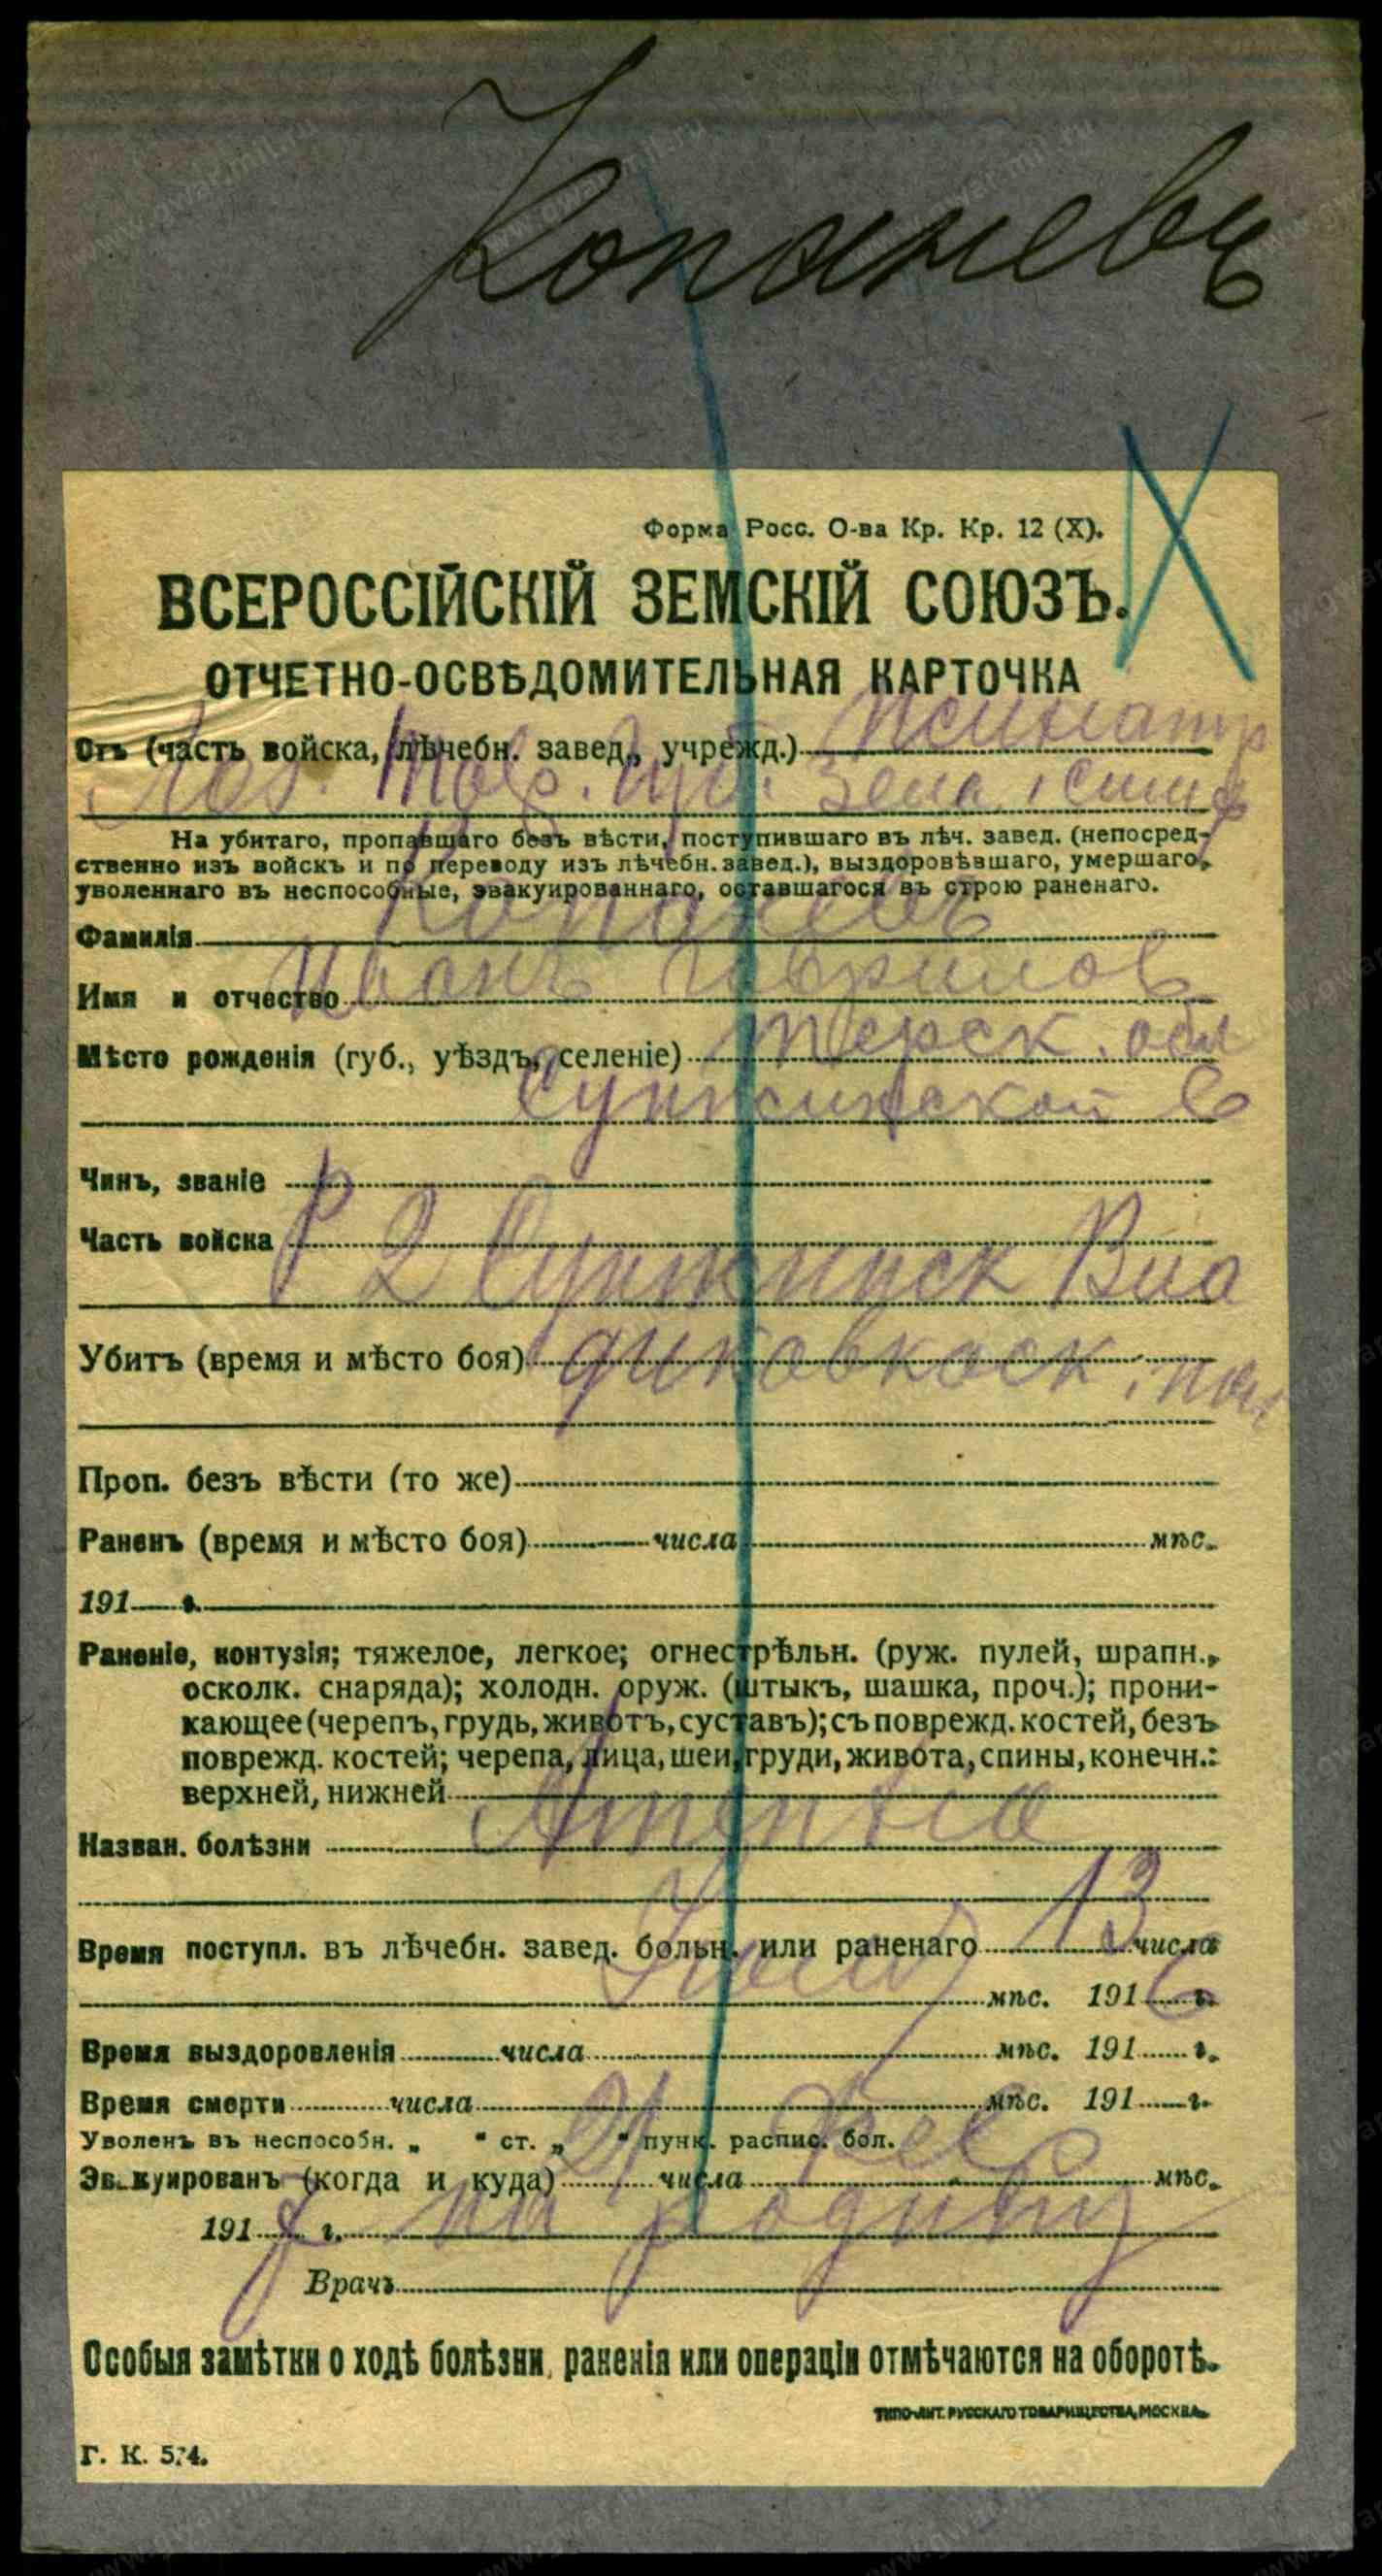 Копаневъ
Форма Росс. О-ва Кр. Кр. 12 (X).
ВСЕРОССІЙСКІЙ ЗЕМСКІЙ СОЮЗЪ.
ОТЧЕТНО-ОСВѢДОМИТЕЛЬНАЯ КАРТОЧКА
Отъ (часть войска, лѣчебн. завед., учрежд.) Психіатр
Таврич. Губ. Зем.
На убитаго, пропавшаго безъ вѣсти, поступившаго въ лѣч. завед. (непосред-
ственно изъ войскъ и по переводу изъ лѣчебн. завед.), выздоровѣвшаго, умершаго,
уволеннаго въ неспособные, эвакуированнаго, оставшагося въ строю раненаго.
Фамилія Копаневъ
Имя и отчество Иванъ Гаврилов
Мѣсто рожденія (губ., уѣздъ, селеніе) Терск. обл
Сунженской
Чинъ, званіе
Часть войска
Р 2 Сунжинск Вла
Убитъ (время и мѣсто боя) дикавкаск.
Проп. безъ вѣсти (то же)
Раненъ (время и мѣсто боя) числа мѣс.
191 г.
Раненіе, контузія; тяжелое, легкое; огнестрѣльн. (руж. пулей, шрапн.,
осколк. снаряда); холодн. оруж. (штыкъ, шашка, проч.); прони-
кающее (черепъ, грудь, животъ, суставъ); съ поврежд. костей, безъ
поврежд. костей; черепа, лица, шеи, груди, живота, спины, конечн.:
верхней, нижней
Назван. болѣзни Amentia
Время поступл. въ лѣчебн. завед. больн. или раненаго 13 числа
мѣс. 1916 г.
Время выздоровленія числа мѣс. 191 г.
Время смерти числа мѣс. 191 г.
Уволенъ въ неспособн. „ " ст. „ " пунк. распис. бол.
Эвакуированъ (когда и куда) 21 числа мѣс.
191 г. на родину
Врачъ
Особыя замѣтки о ходѣ болѣзни, раненія или операціи отмѣчаются на оборотѣ.
ТИПО-ЛИТ. РУССКАГО ТОВАРИЩЕСТВА, МОСКВА.
Г. К. 574.